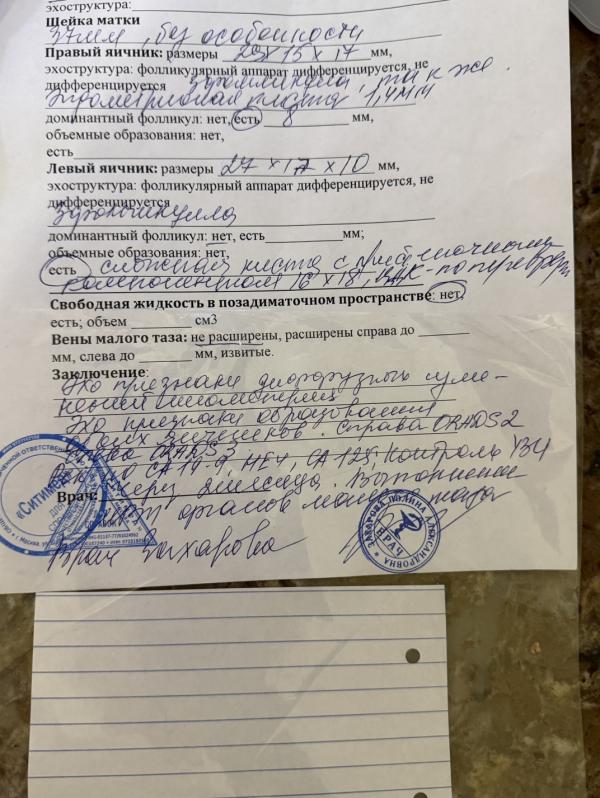 эхоструктура:
Шейка матки
37мм, без особенности
Правый яичник: размеры 29 x 15 x 17 мм,
эхоструктура: фолликулярный аппарат дифференцируется, не
дифференцируется так же.
1,4мм
доминантный фолликул: нет, есть 8 мм,
объемные образования: нет,
есть
Левый яичник: размеры 27 x 17 x 10 мм,
эхоструктура: фолликулярный аппарат дифференцируется, не
дифференцируется
доминантный фолликул: нет, есть мм;
объемные образования: нет,
есть сложная киста с
компонентом 16 x 18,
Свободная жидкость в позадиматочном пространстве: нет,
есть; объем см3
Вены малого таза: не расширены, расширены справа до
мм, слева до мм, извитые.
Заключение:
Эхо признаки диффузных изме-
нений миометрия
Эхо признаки образования
обоих яичников. Справа ORADS 2
слева ORADS 3
CA 19-9, HE4, CA 125, контроль УЗИ
Выполнение
Врач: органов малого таза
Врач Захарова
«СИТИМЕД»
ЗАХАРОВА ПОЛИНА АЛЕКСАНДРОВНА
ВРАЧ